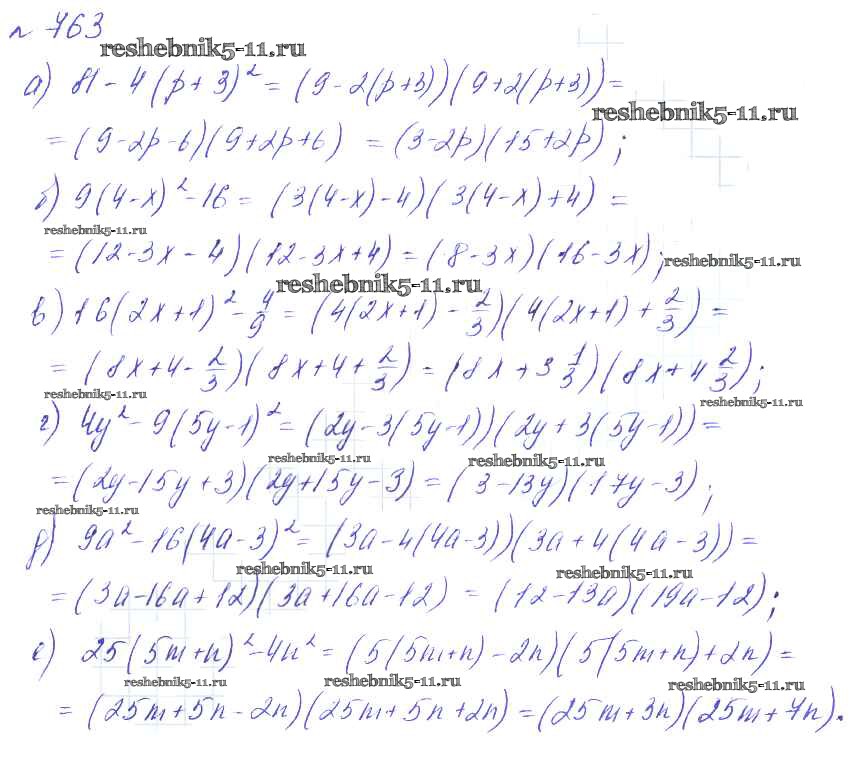 № 763
reshebnik5-11.ru
а) 81 - 4(p+3)² = (9-2(p+3))(9+2(p+3)) =
reshebnik5-11.ru
= (9-2p-6)(9+2p+6) = (3-2p)(15+2p);
б) 9(4-x)² - 16 = (3(4-x)-4)(3(4-x)+4) =
reshebnik5-11.ru
= (12-3x-4)(12-3x+4) = (8-3x)(16-3x);
reshebnik5-11.ru
reshebnik5-11.ru
в) 16(2x+1)² - 4/9 = (4(2x+1) - 2/3)(4(2x+1) + 2/3) =
= (8x+4-2/3)(8x+4+2/3) = (8x+3 1/3)(8x+4 2/3);
reshebnik5-11.ru
reshebnik5-11.ru
г) 4y² - 9(5y-1)² = (2y-3(5y-1))(2y+3(5y-1)) =
reshebnik5-11.ru
reshebnik5-11.ru
= (2y-15y+3)(2y+15y-3) = (3-13y)(17y-3);
reshebnik5-11.ru
д) 9a² - 16(4a-3)² = (3a-4(4a-3))(3a+4(4a-3)) =
reshebnik5-11.ru
reshebnik5-11.ru
= (3a-16a+12)(3a+16a-12) = (12-13a)(19a-12);
е) 25(5m+n)² - 4n² = (5(5m+n)-2n)(5(5m+n)+2n) =
reshebnik5-11.ru
reshebnik5-11.ru
reshebnik5-11.ru
= (25m+5n-2n)(25m+5n+2n) = (25m+3n)(25m+7n).